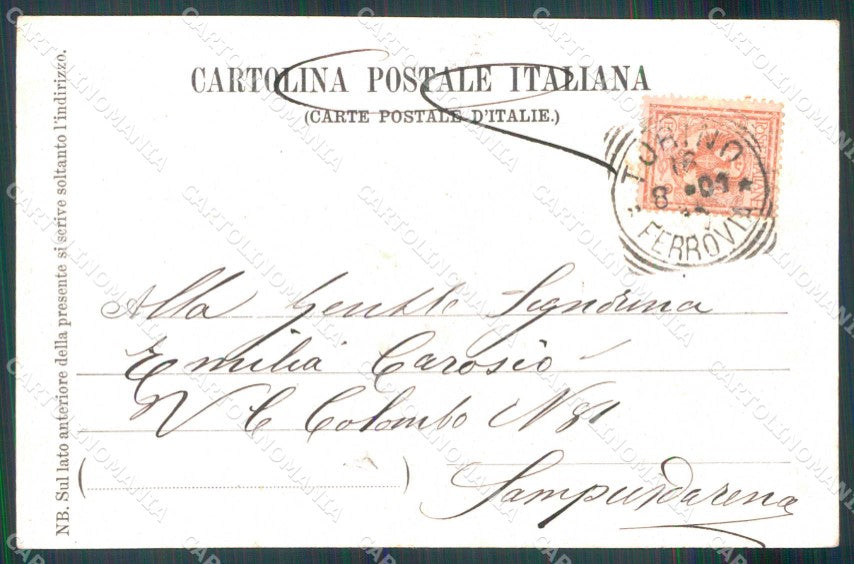 CARTOLINA POSTALE ITALIANA
(CARTE POSTALE D'ITALIE.)
TORINO
16
8 •01 *
FERROVIA
Alla Gentile Signorina
Emilia Carosio
V C Colombo N 81
Sampierdarena
NB. Sul lato anteriore della presente si scrive soltanto l'indirizzo.
CARTOLINOMANIA